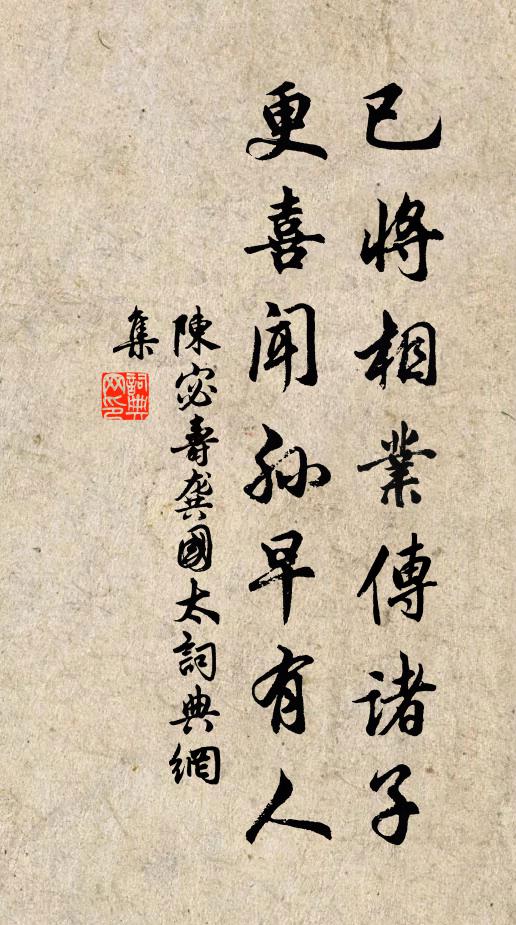 已將相業傳諸子
更喜聞孫早有人
陳宓壽龔國太詞典網
集
詞典網印